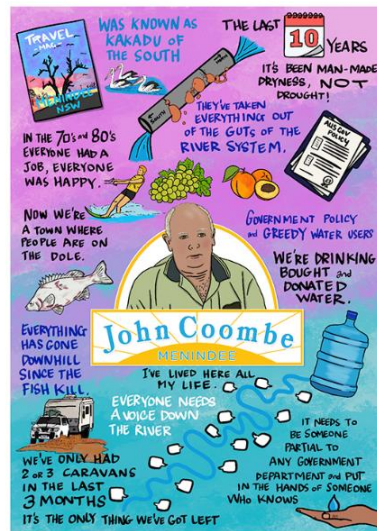 TRAVEL
MAG.
MENINDEE
NSW
WAS KNOWN AS
KAKADU OF
THE SOUTH
THE LAST
10
YEARS
IT'S BEEN MAN-MADE
DRYNESS, NOT
DROUGHT!
SOUTH
THEY'VE TAKEN
EVERYTHING OUT
OF THE GUTS OF THE
RIVER SYSTEM.
AUS GOV
POLICY
IN THE 70's AND 80's
EVERYONE HAD A
JOB, EVERYONE
WAS HAPPY.
NOW WE'RE
A TOWN WHERE
PEOPLE ARE ON
THE DOLE.
GOVERNMENT POLICY
and GREEDY WATER USERS
WE'RE DRINKING
BOUGHT and
DONATED
WATER.
EVERYTHING
HAS GONE
DOWNHILL
SINCE THE
FISH KILL.
John Coombe
MENINDEE
I'VE LIVED HERE ALL
MY LIFE.
EVERYONE NEEDS
A VOICE DOWN
THE RIVER
IT NEEDS TO
BE SOMEONE
PARTIAL TO
ANY GOVERNMENT
DEPARTMENT and PUT
IN THE HANDS OF SOMEONE
WHO KNOWS
WE'VE ONLY HAD
2 OR 3 CARAVANS
IN THE LAST
3 MONTHS
IT'S THE ONLY THING WE'VE GOT LEFT